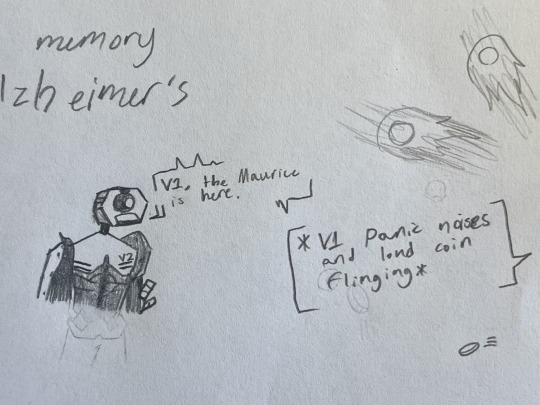 memory
lzheimer's
V1, the Maurice
is here.
V2
*V1 Panic noises
and loud coin
flinging*